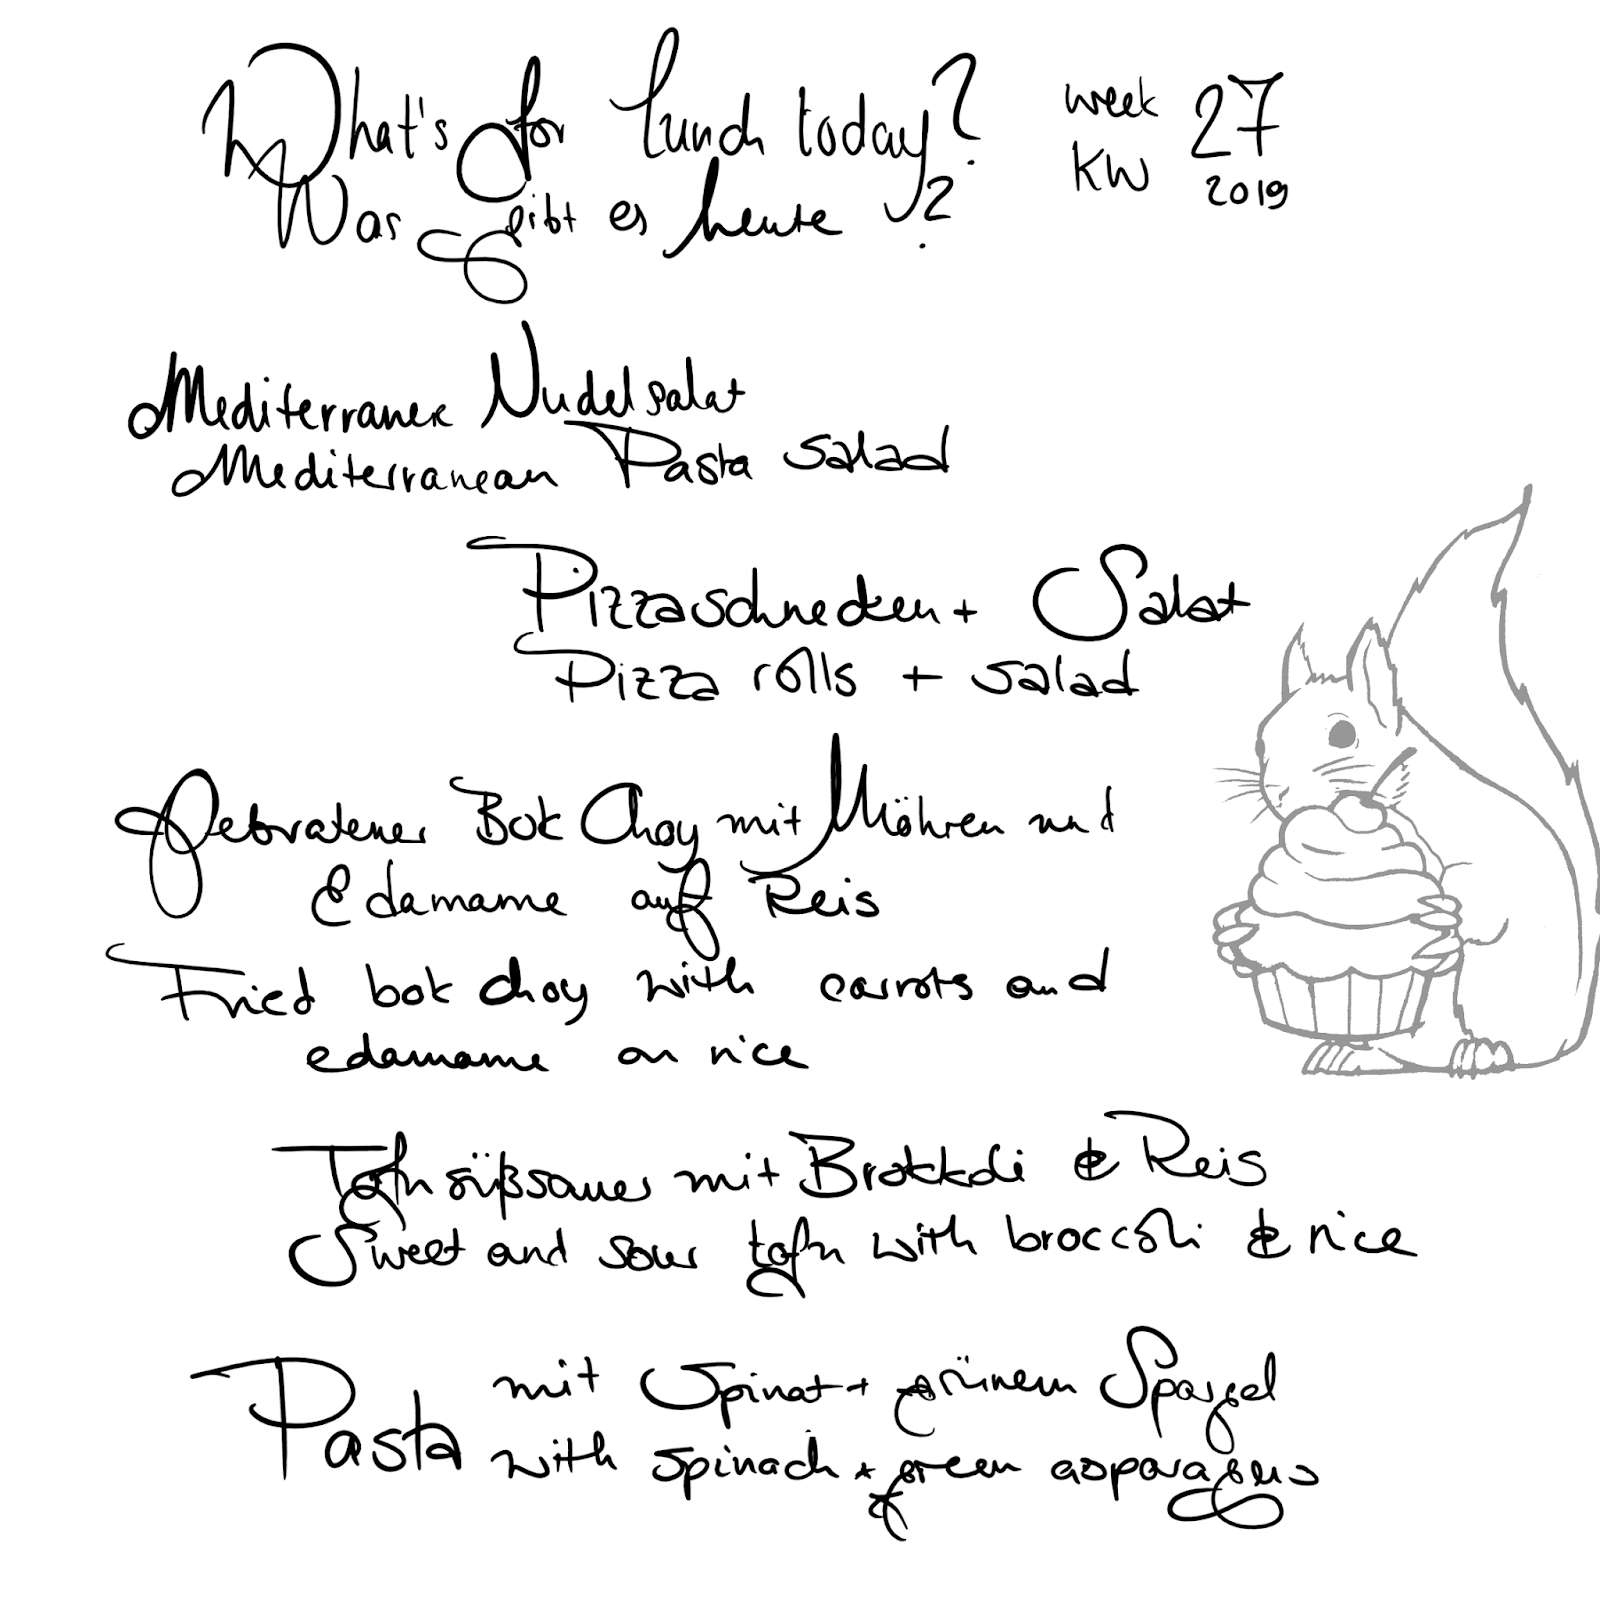 What's for lunch today?
Was gibt es heute?
week KW 27
2019
Mediterraner Nudelsalat
Mediterranean Pasta salad
Pizzaschnecken + Salat
Pizza rolls + salad
Gebratener Bok Choy mit Möhren und
Edamame auf Reis
Fried bok choy with carrots and
edamame on rice
Tofu süßsauer mit Brokkoli & Reis
Sweet and sour tofu with broccoli & rice
Pasta mit Spinat + grünem Spargel
with spinach + green asparagus